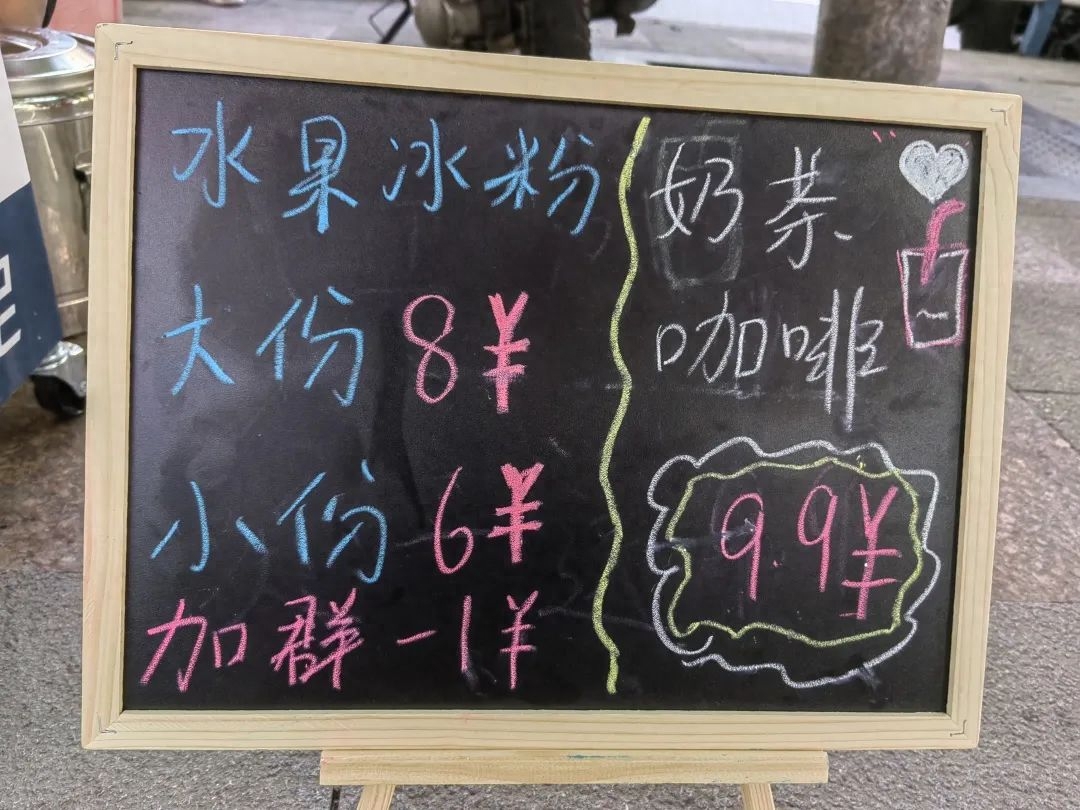 水果冰粉
大份 8¥
小份 6¥
加群-1¥
奶茶
咖啡
9.9¥